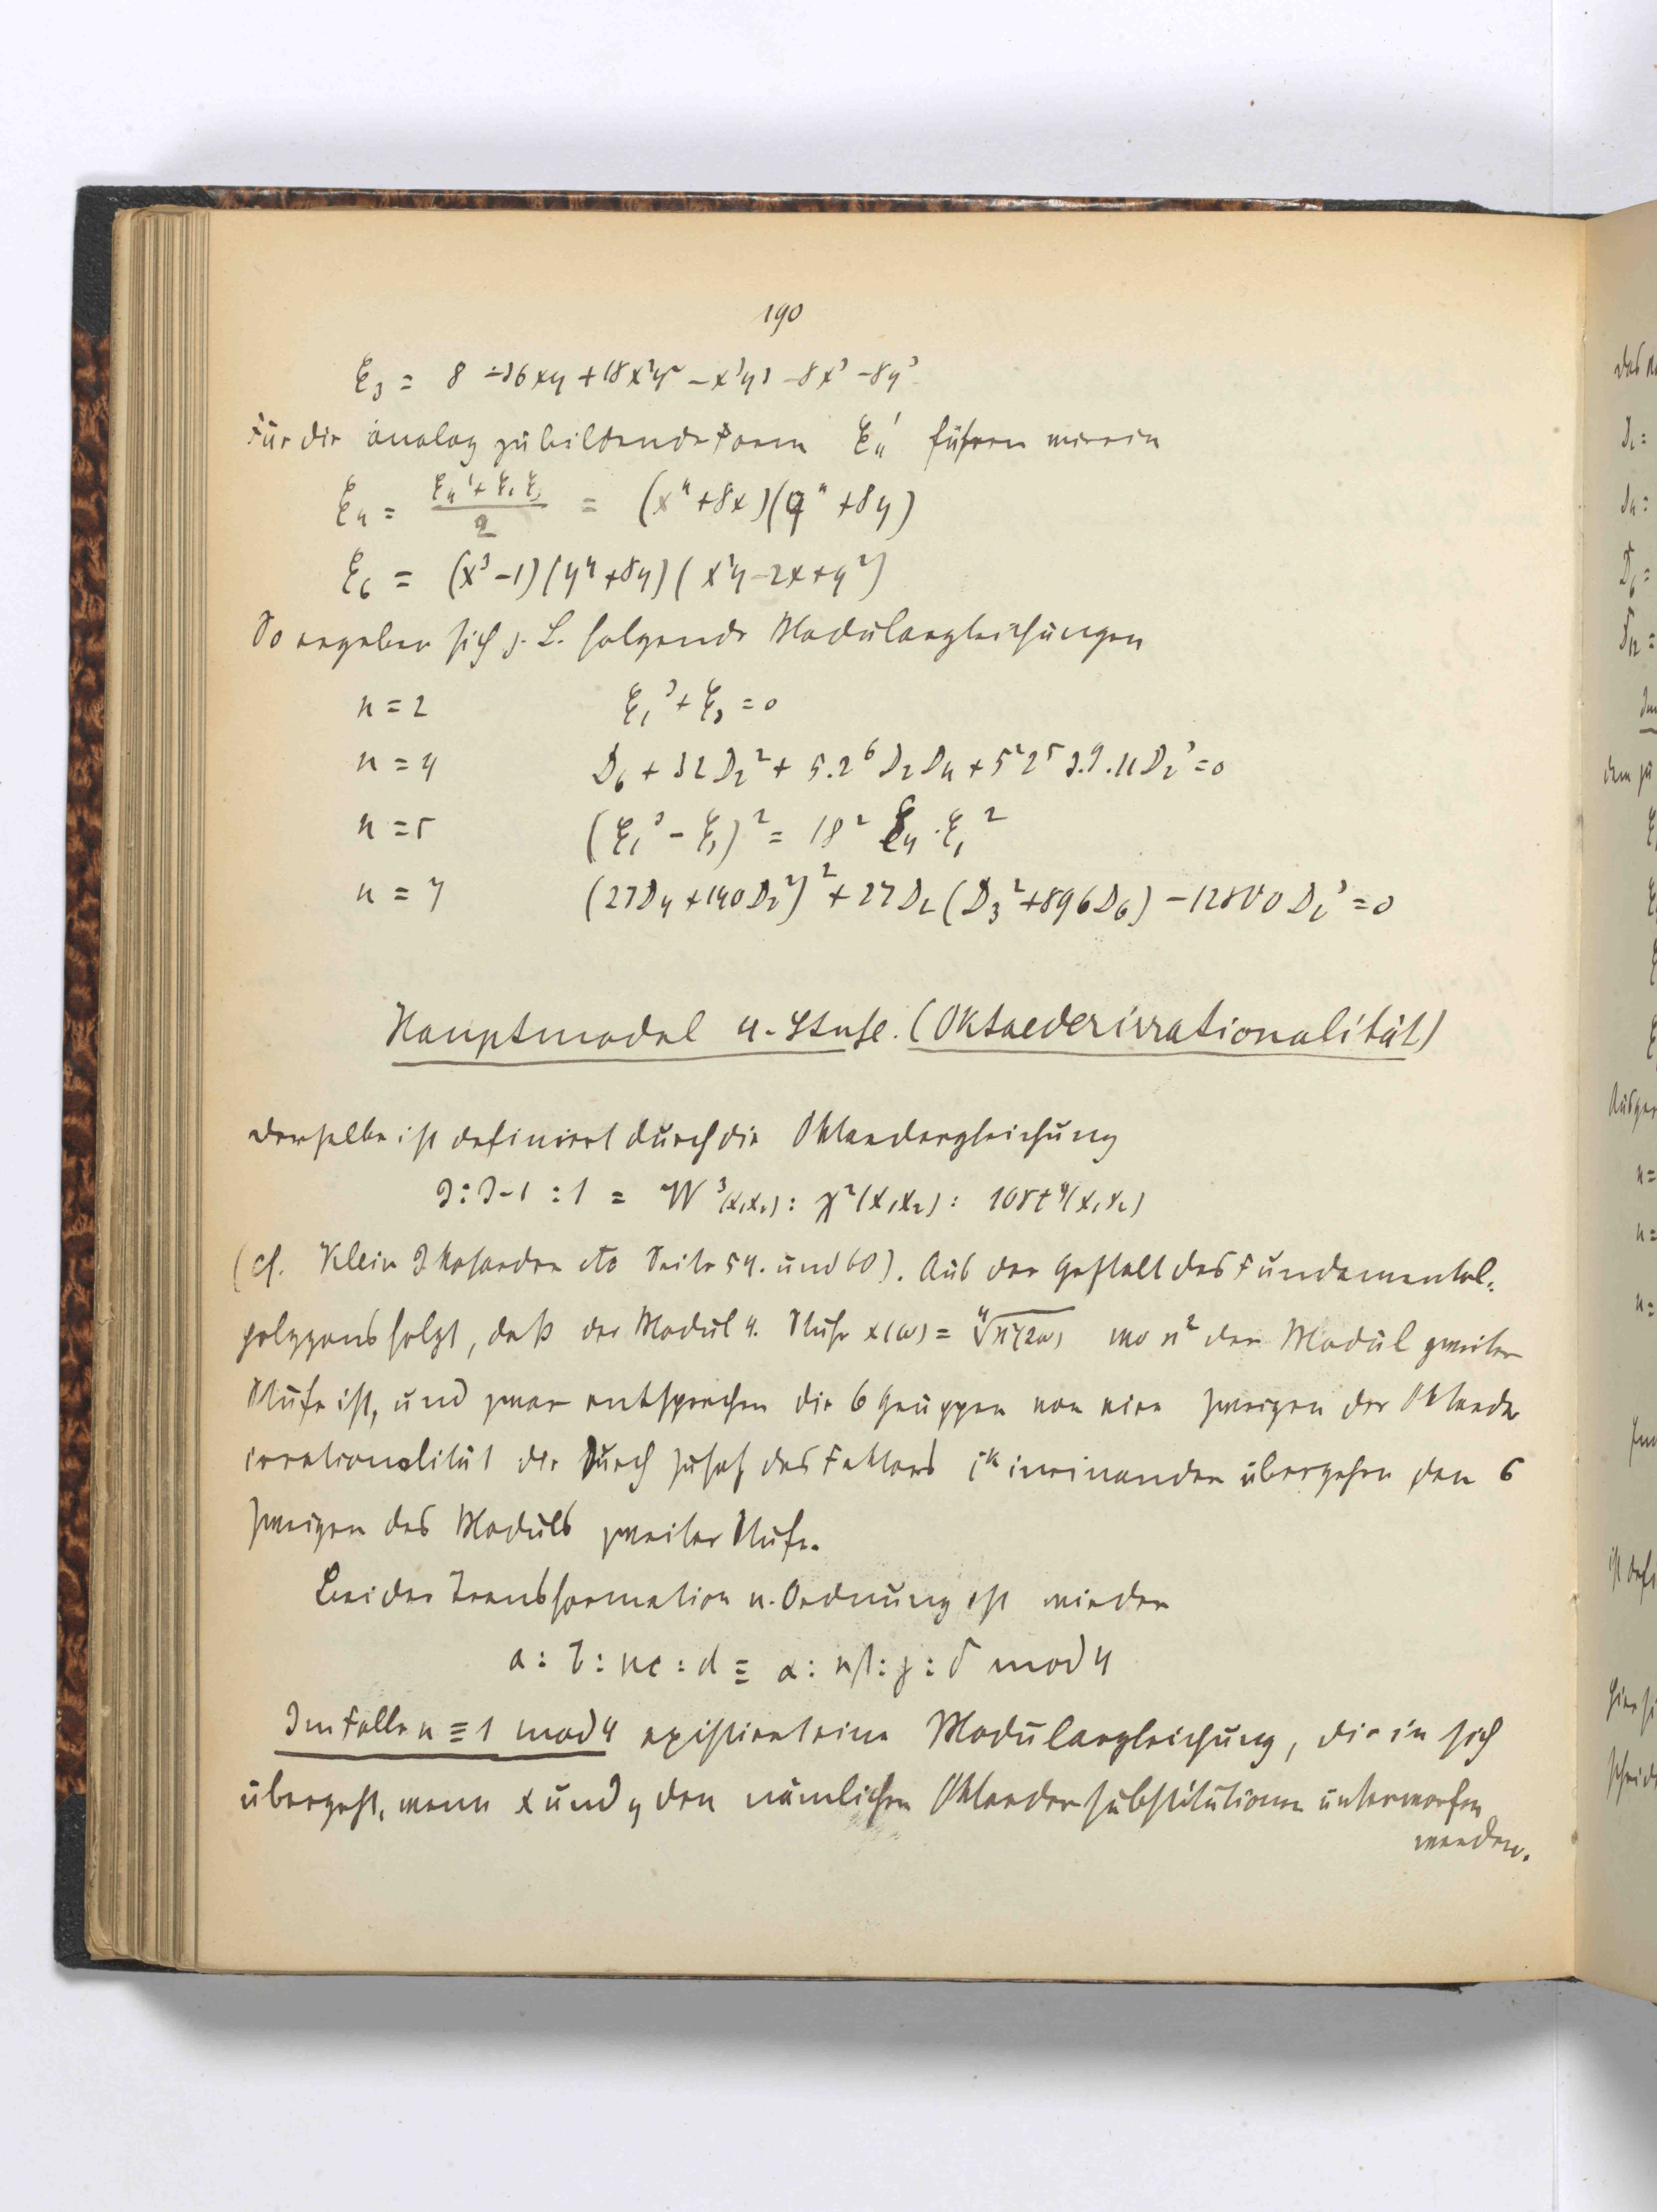 190
ξ₃ = 8 - 36xy + 18x²y² - x³y³ - 8x³ - 8y³
Für die analog zu bildende Form ξ₄' führen wir ein
ξ₄ = (ξ₄' + ξ₁ξ₃)/2 = (x⁴ + 8x)(y⁴ + 8y)
ξ₆ = (x³ - 1)(y⁴ + 8y)(x²y - 2x + y²)
So ergeben sich z. B. folgende Modulargleichungen
n = 2 ξ₁³ + ξ₃ = 0
n = 4 D₆ + 32D₂² + 5.2⁶ D₂D₄ + 5²2⁵ D₂³ = 0
n = 5 (ξ₁³ - ξ₃)² = 18² ξ₄·ξ₁²
n = 7 (27D₄ + 140D₂²)² + 27D₂(D₃² + 896D₆) - 12800D₂³ = 0
Hauptmodul 4. Stufe. (Oktaederirrationalität)
Derselbe ist definiert durch die Oktaedergleichung
J : J-1 : 1 = W³(x₁x₂) : χ²(x₁x₂) : 108t⁴(x₁x₂)
(cf. Klein Ikosaeder etc Seite 54. und 60). Aus der Gestalt des Fundamental-
polygons folgt, daß der Modul 4. Stufe x(ω) = ⁴√ϰ²(2ω) wo ϰ² der Modul zweiter
Stufe ist, und zwar entsprechen die 6 Gruppen von vier Zweigen der Oktaeder
irrationalität die durch Zusatz des Faktors iᵏ ineinander übergehen den 6
Zweigen des Moduls zweiter Stufe.
Bei der Transformation n. Ordnung ist wieder
a : b : nc : d ≡ α : nβ : γ : δ mod 4
Im Falle n ≡ 1 mod 4 existiert eine Modulargleichung, die in sich
übergeht, wenn x und y den nämlichen Oktaedersubstitutionen unterworfen
werden.